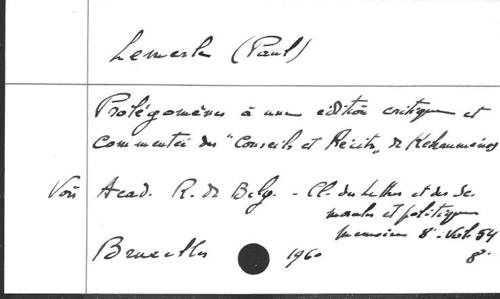 Lemerle (Paul)
Prolégomènes à une édition critique et
commentée des "Conseils et Récits" de Kekaumenos
Voir Acad. R. de Belg. - Cl. des Lettres et des Sc.
morales et politiques
Mémoires 8° - Vol. 54
Bruxelles 1960 8°